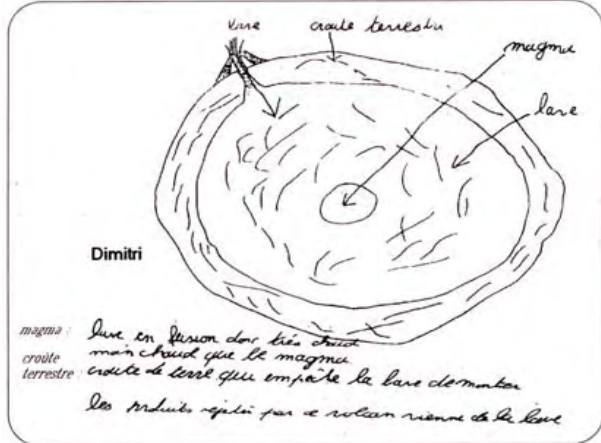 lave croûte terrestre
magma
lave
Dimitri
magma : lave en fusion donc très chaud
moin chaud que le magma
croûte
terrestre : croute de terre qui empêche la lave de monter
les produits rejetés par ce volcan vienne de la lave